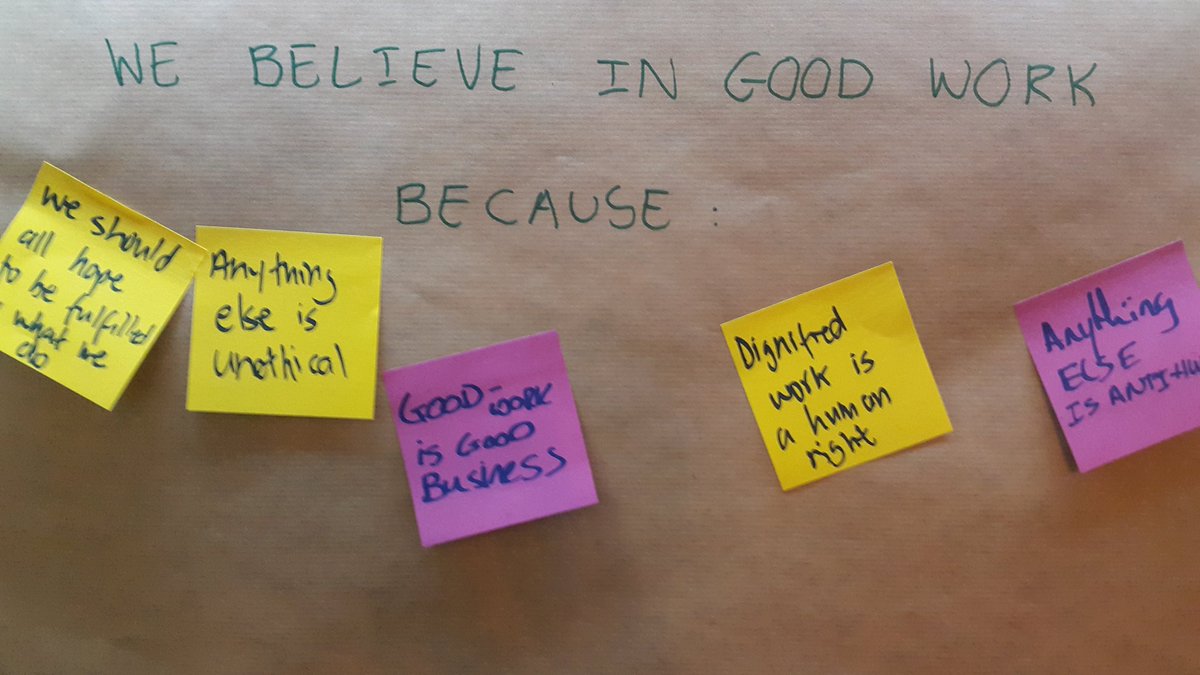 WE BELIEVE IN GOOD WORK
BECAUSE :
We should
all hope
to be fulfilled
what we
do
Anything
else is
unethical
GOOD-WORK
is GOOD
BUSINESS
Dignified
work is
a human
right
Anything
ELSE
IS